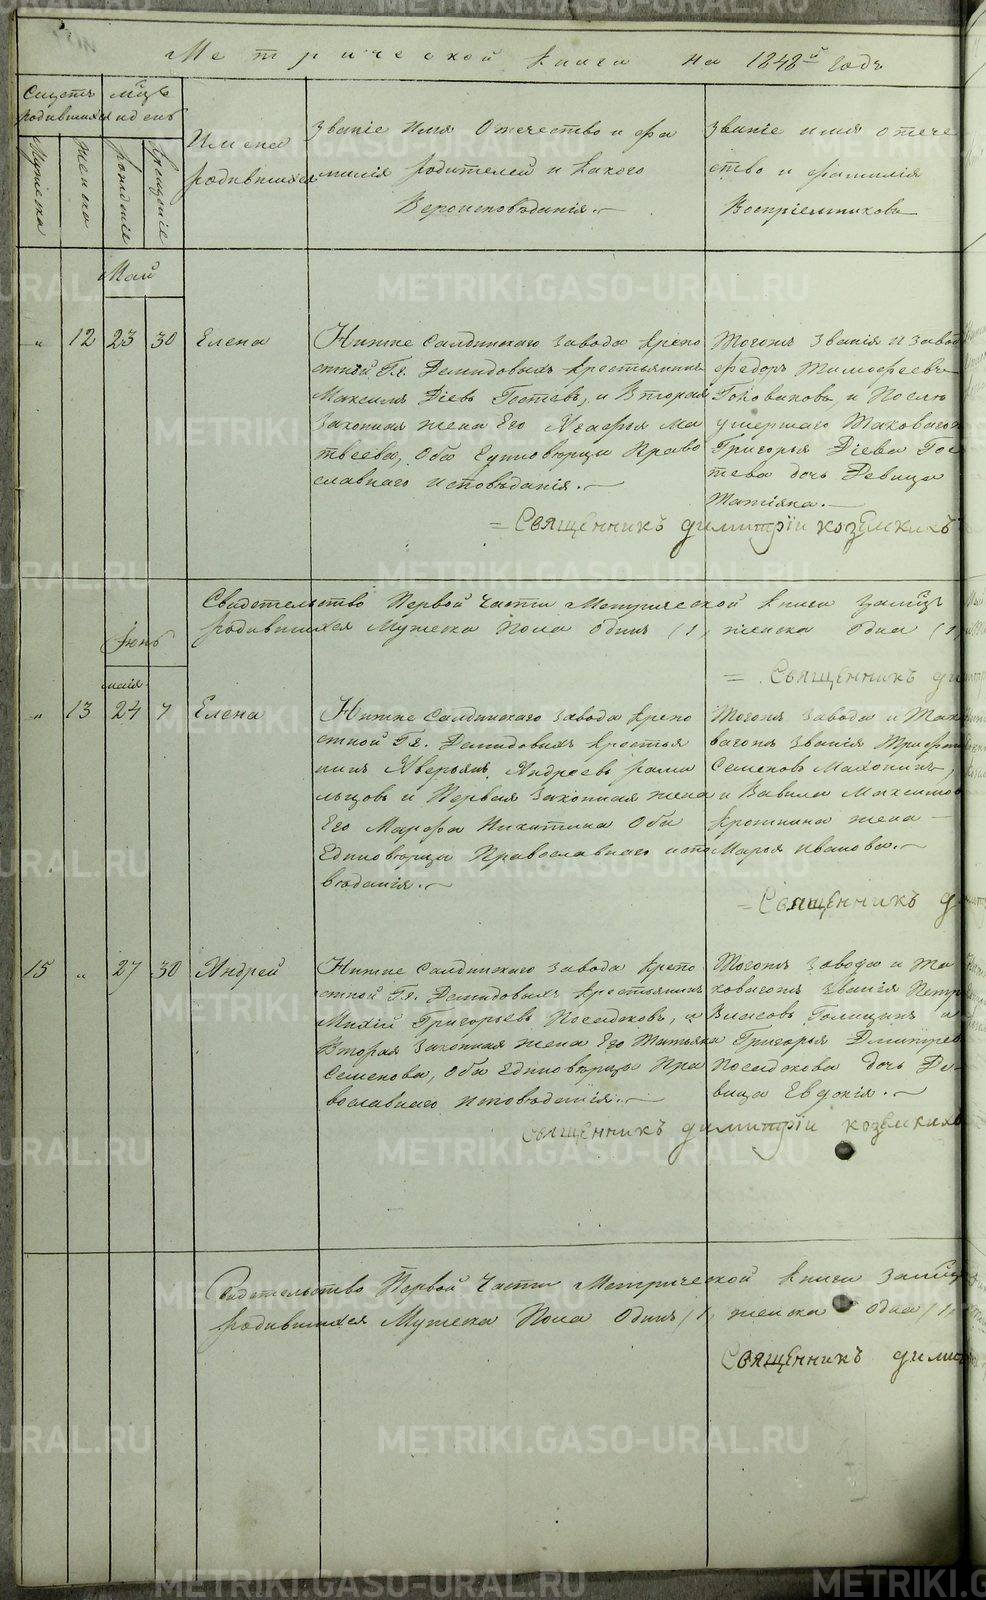 Метрической книги на 1848й годъ
Счетъ родившихся
Мужеска
женска
мсцъ и день
рожденіе
крещеніе
Имена
родившихся
Званіе Имя Отечество и фа
милія родителей и какого
Вероисповѣданія.
Званіе имя отече
ство и фамилія
Воспріемниковъ
Май
" 12 23 30 Елена
Нижне Салдинскаго завода крепо
стной Гг. Демидовыхъ крестьянинъ
Максимъ Діевъ Гостевъ, и Вторая
Законная жена Его Агафья Ма
твеева, Оба Единовѣрцы Право
славнаго исповѣданія.
Тогожъ Званія и завод
Федоръ Тимофеевъ
Головановъ, и После
умершаго Таковагож
Григорья Діева Гос
тева дочь Девица
Татіяна.
= Священникъ димитрїи козелкихъ
Свидетельство Первой Части Метрической книги замсцъ
родившихся Мужеска Пола Одинъ (1, женска одна (1,
= Священникъ ди
Іюнь
маія
" 13 24 7 Елена
Нижне Салдинскаго завода крепо
стной Гг. Демидовыхъ крестья
нинъ Аверьянъ Андреевъ фами
льцовъ и Первая Законная жена
Его Марфа Никитина Оба
Единовѣрцы Православнаго испо
вѣданія.
Тогожъ завода и Так
вагожъ званія Трифон
Семеновъ Махонинъ,
и Вавила Максимов
кротнина жена
Марья иванова.
= Священникъ д
15 " 27 30 Андрей
Нижне Салдинскаго завода крепо
стной Гг. Демидовыхъ крестьянинъ
Михій Григорьевъ Поседковъ, и
Вторая Законная жена Его Татьяна
Семенова, Оба Единовѣрцы Пра
вославнаго исповѣданія.
Тогожъ завода и Та
ковагожъ званія Петр
Власовъ Голицынъ и
Григорья Дмитрев
Поседкова дочь Де
вица Евдокія.
Священникъ димитрїи козелкихъ
Свидетельство Первой Части Метрической книги замсцъ
родившихся Мужеска Пола Одинъ (1, женска одна (1,
Священникъ дими